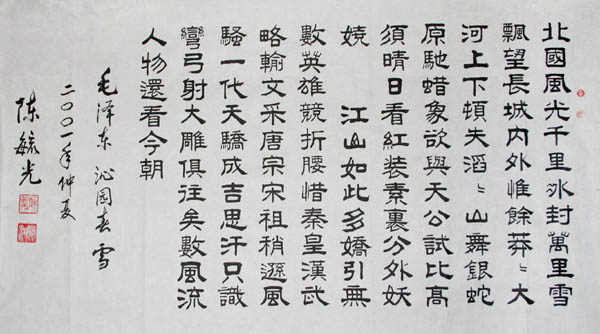 北國風光千里冰封萬里雪
飄望長城內外惟餘莽〻大
河上下頓失滔〻山舞銀蛇
原馳蜡象欲與天公試比高
須晴日看紅装素裹分外妖
嬈 江山如此多嬌引無
數英雄競折腰惜秦皇漢武
略輸文采唐宗宋祖稍遜風
騷一代天驕成吉思汗只識
彎弓射大雕俱往矣數風流
人物還看今朝
毛泽东 沁园春 雪
二〇〇一年仲夏
陈毓光